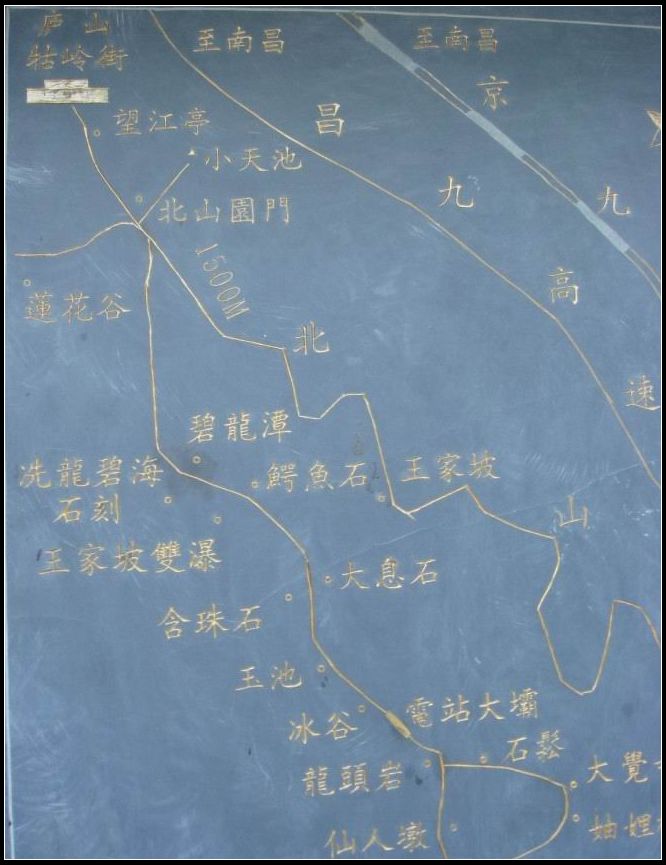 庐山
牯岭街
至南昌
至南昌
京
九
望江亭
昌
九
高
速
小天池
北山園門
1500M
蓮花谷
北
山
碧龍潭
冼龍碧海
石刻
鰐魚石
王家坡
王家坡雙瀑
大息石
含珠石
玉池
冰谷
電站大壩
石鬆
龍頭岩
大覺
仙人墩